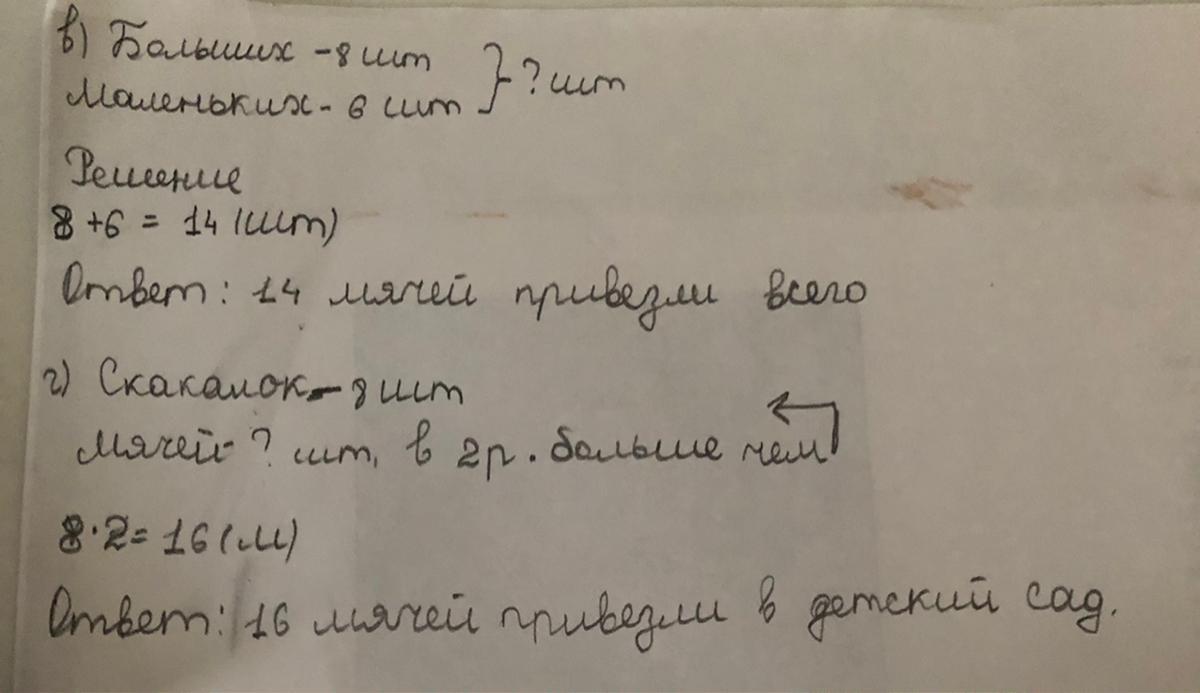 в) Больших - 8 шт } ? шт
Маленьких - 6 шт
Решение
8 + 6 = 14 (шт)
Ответ: 14 мячей привезли всего
г) Скакалок - 8 шт
Мячей - ? шт, в 2 р. больше чем
8 · 2 = 16 (м)
Ответ: 16 мячей привезли в детский сад.